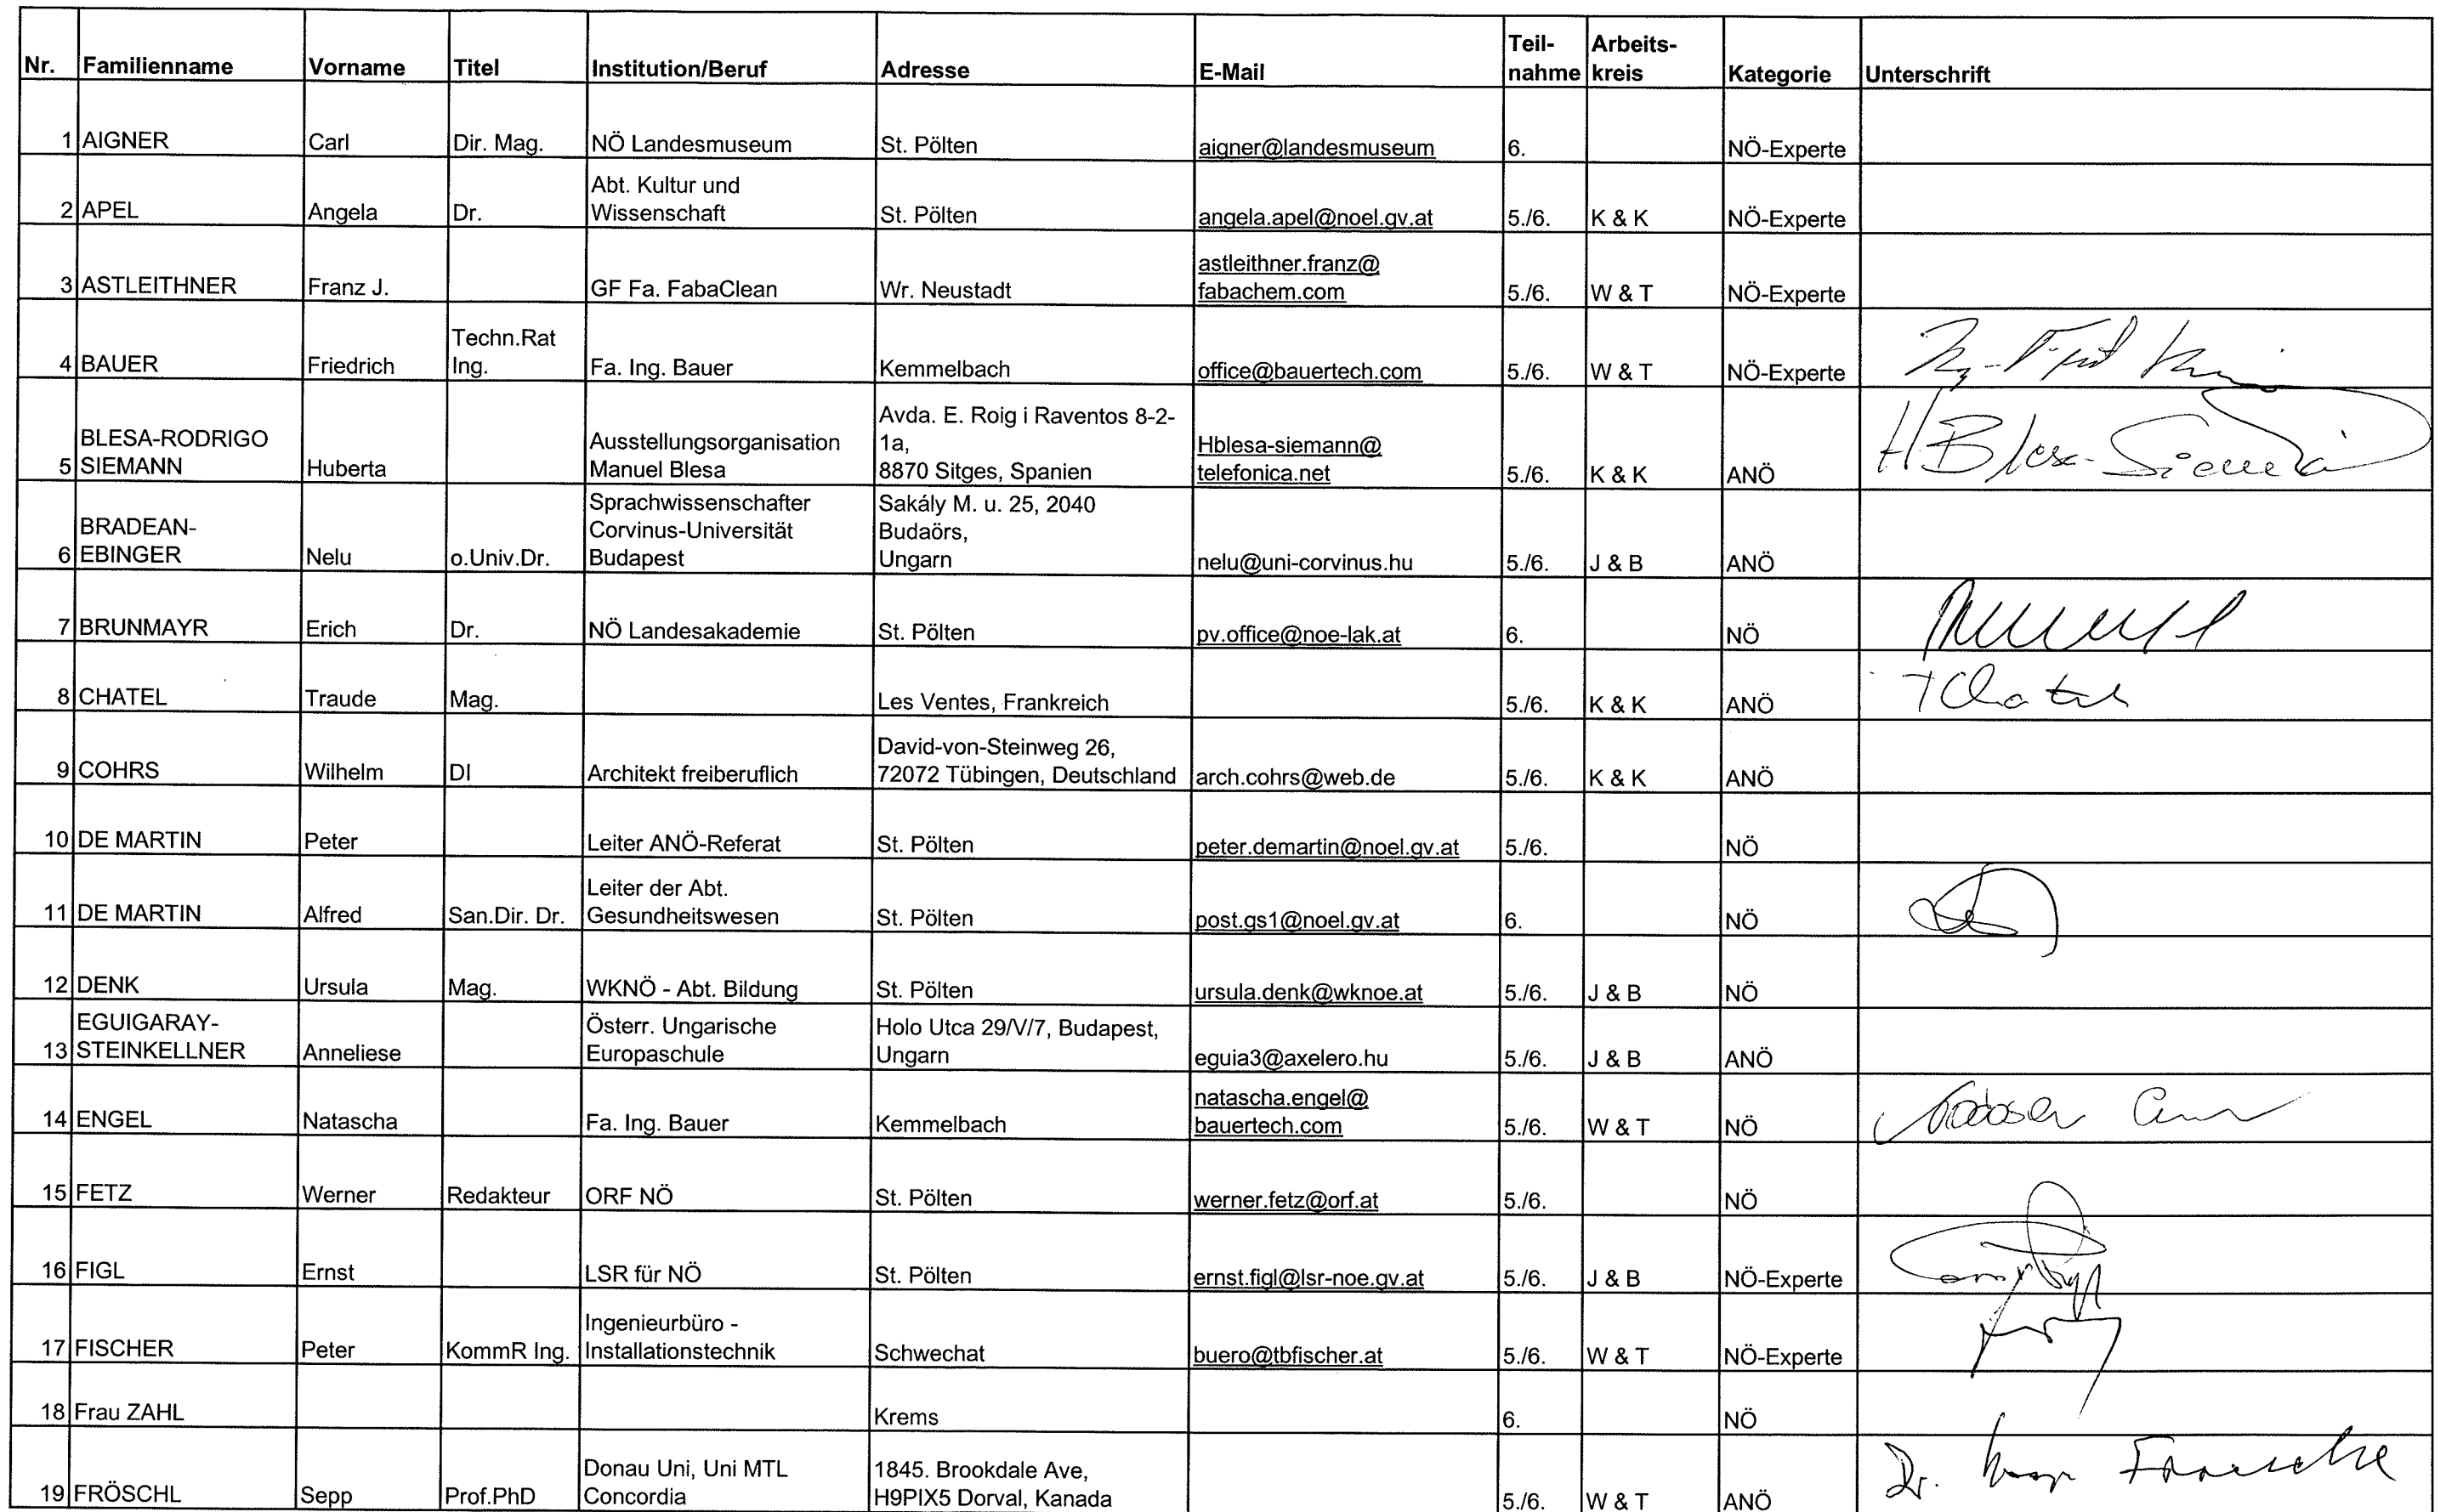 Nr. Familienname Vorname Titel Institution/Beruf Adresse E-Mail Teil- nahme Arbeits- kreis Kategorie Unterschrift
1 AIGNER Carl Dir. Mag. NÖ Landesmuseum St. Pölten aigner@landesmuseum 6. NÖ-Experte
2 APEL Angela Dr. Abt. Kultur und Wissenschaft St. Pölten angela.apel@noel.gv.at 5./6. K & K NÖ-Experte
3 ASTLEITHNER Franz J. GF Fa. FabaClean Wr. Neustadt astleithner.franz@ fabachem.com 5./6. W & T NÖ-Experte
4 BAUER Friedrich Techn.Rat Ing. Fa. Ing. Bauer Kemmelbach office@bauertech.com 5./6. W & T NÖ-Experte
5 BLESA-RODRIGO SIEMANN Huberta Ausstellungsorganisation Manuel Blesa Avda. E. Roig i Raventos 8-2-1a, 8870 Sitges, Spanien Hblesa-siemann@ telefonica.net 5./6. K & K ANÖ HBlesa-Siemann
6 BRADEAN-EBINGER Nelu o.Univ.Dr. Sprachwissenschafter Corvinus-Universität Budapest Sakály M. u. 25, 2040 Budaörs, Ungarn nelu@uni-corvinus.hu 5./6. J & B ANÖ
7 BRUNMAYR Erich Dr. NÖ Landesakademie St. Pölten pv.office@noe-lak.at 6. NÖ
8 CHATEL Traude Mag. Les Ventes, Frankreich 5./6. K & K ANÖ TChatel
9 COHRS Wilhelm DI Architekt freiberuflich David-von-Steinweg 26, 72072 Tübingen, Deutschland arch.cohrs@web.de 5./6. K & K ANÖ
10 DE MARTIN Peter Leiter ANÖ-Referat St. Pölten peter.demartin@noel.gv.at 5./6. NÖ
11 DE MARTIN Alfred San.Dir. Dr. Leiter der Abt. Gesundheitswesen St. Pölten post.gs1@noel.gv.at 6. NÖ
12 DENK Ursula Mag. WKNÖ - Abt. Bildung St. Pölten ursula.denk@wknoe.at 5./6. J & B NÖ
13 EGUIGARAY-STEINKELLNER Anneliese Österr. Ungarische Europaschule Holo Utca 29/V/7, Budapest, Ungarn eguia3@axelero.hu 5./6. J & B ANÖ
14 ENGEL Natascha Fa. Ing. Bauer Kemmelbach natascha.engel@ bauertech.com 5./6. W & T NÖ
15 FETZ Werner Redakteur ORF NÖ St. Pölten werner.fetz@orf.at 5./6. NÖ
16 FIGL Ernst LSR für NÖ St. Pölten ernst.figl@lsr-noe.gv.at 5./6. J & B NÖ-Experte
17 FISCHER Peter KommR Ing. Ingenieurbüro - Installationstechnik Schwechat buero@tbfischer.at 5./6. W & T NÖ-Experte
18 Frau ZAHL Krems 6. NÖ
19 FRÖSCHL Sepp Prof.PhD Donau Uni, Uni MTL Concordia 1845. Brookdale Ave, H9PIX5 Dorval, Kanada 5./6. W & T ANÖ Dr.